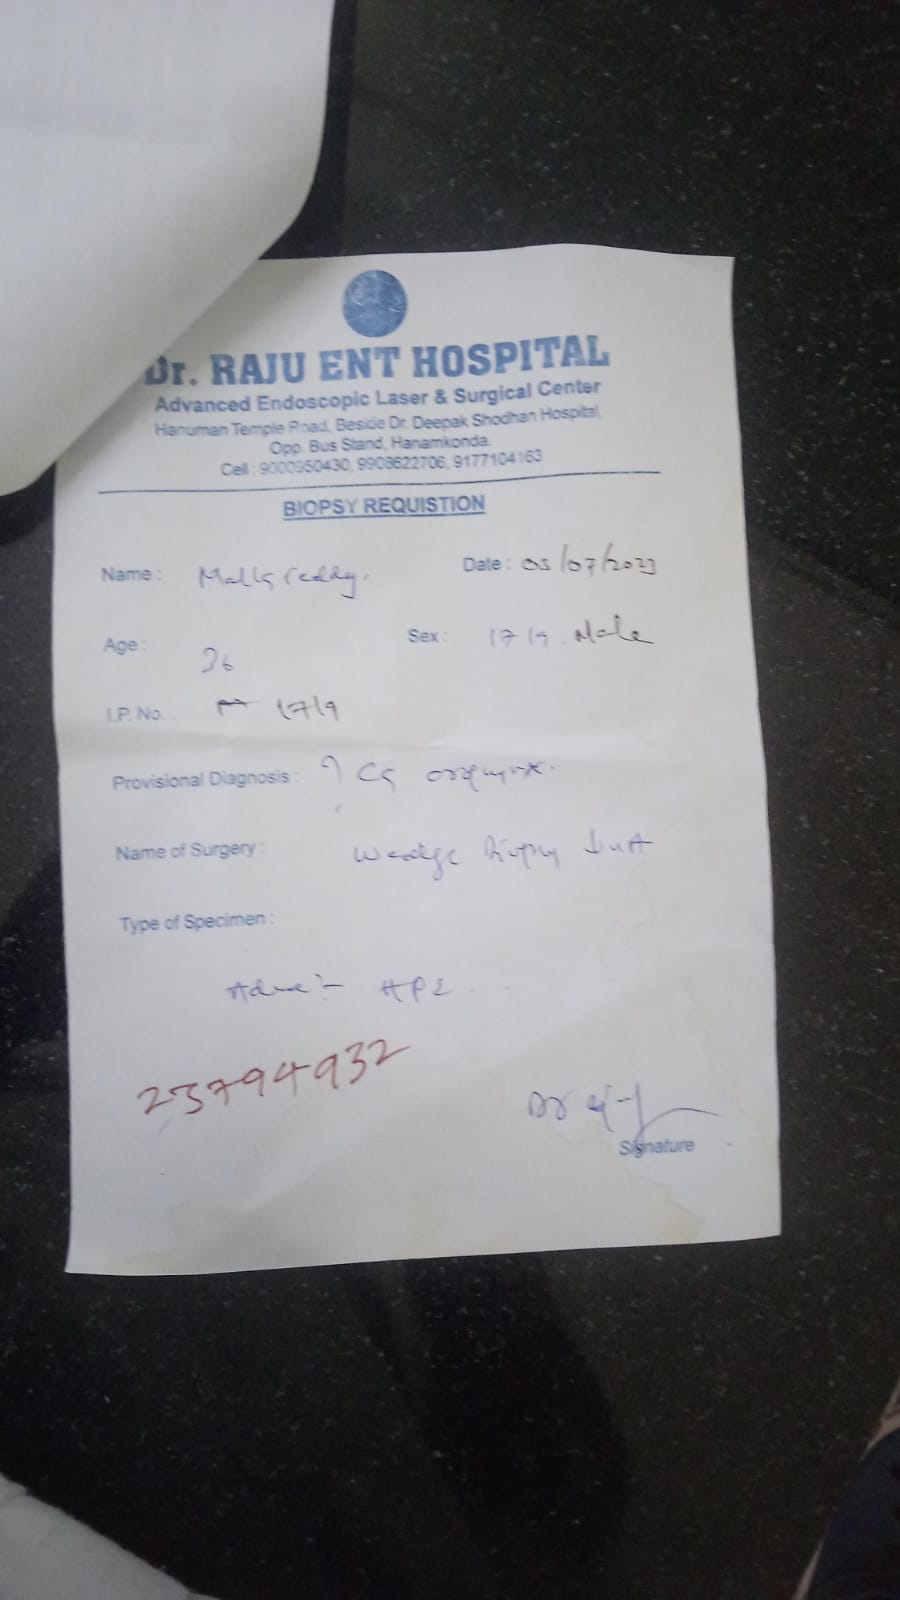 Dr. RAJU ENT HOSPITAL
Advanced Endoscopic Laser & Surgical Center
Hanuman Temple Road, Beside Dr. Deepak Shodhan Hospital,
Opp. Bus Stand, Hanamkonda.
Cell : 9000950430, 9908622706, 9177104163
BIOPSY REQUISTION
Name : reddy. Date : 05/07/2023
Age : 36 Sex : 1719 Male
I.P. No. 1719
Provisional Diagnosis : ? Ca
Name of Surgery : Wedge Biopsy
Type of Specimen :
Adv :- HPE
23794932
Dr
Signature